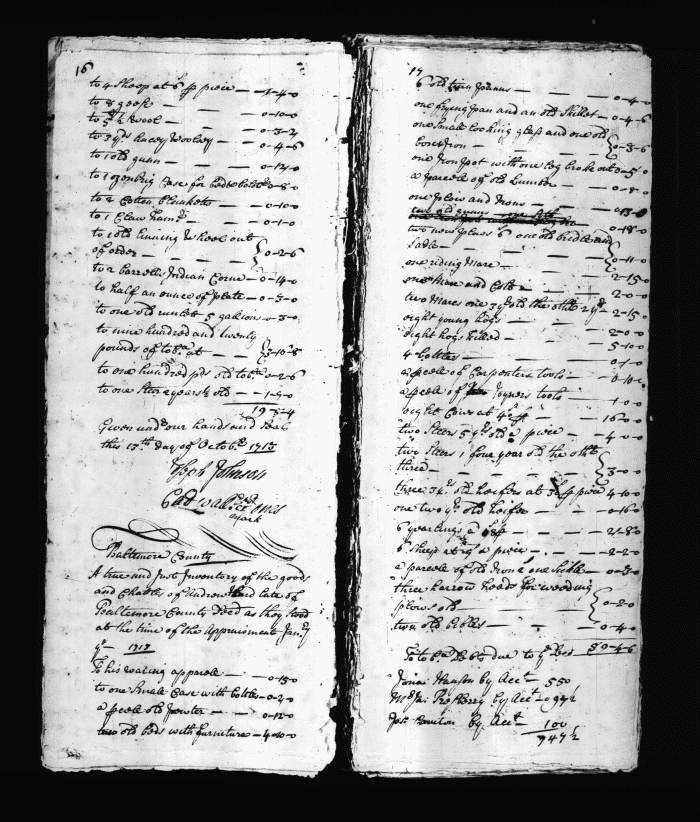 16
to 4 Sheep at 6 ss piece — 1-4-0
to 8 geese — — — 0-10-0
to 5 ½ Wool — — — 0-3-4
to 3 yds Lincey Woolsey — 0-4-6
to 1 old gunn — — — 0-12-0
to 1 ozenbrig Case for bed & bolster 0-8-0
to 2 Cotton blankets — 0-10-0
to 1 Claw hamr — — 0-1-0
to 1 old Spining Wheel out
of order — — — 0-2-6
to 2 barrells Indian Corne — 0-14-0
to half an ounce of plate — 0-3-0
to one old runlet 5 gallons — 0-3-0
to nine hundred and twenty
pounds of tobo at — 3-16-8
to one hundred pds old tobo 0-2-6
to one Steer 2 years ½ old — 1-9-0
19 3-4
Given undr our hands and Seal
this 15th day of Octobr 1713
Joseph Johnson
Edwd his mark
Baltemore County
A true and Just Inventory of the goods
and Chattles of Andrew late of
Baltemore County Decd as they stood
at the time of the Appraisment Janry
ye 1713
To his waring apparele — 0-15-0
to one Smale Case with bottles 0-2-0
a pcele old pewter — — 0-12-0
two old beds with furniture — 4-10-0
17
6 old — — 0-4-0
one frying pan and an old Skillet — 0-4-6
one Smale looking glass and one old
box Iron — — — 0-3-6
one Iron pot with one leg broke out 0-5-0
a parcele of old Lumber — 0-8-0
one plow and Irons — — 13-0
two new plows & one old bridle and
Sadle — — — 0-11-0
one riding Mare — — 2-15-0
one Mare and Colt — — 2-0-0
two Mares one 3 yr old the other 2 yr — 2-15-0
eight young hogs — — 2-0-0
eight hogs killed — — 5-10-0
4 bottles — — 0-1-0
a pcele of Carpenters tools — 0-10-0
a pcele of Joyners tools — 1-0-0
eight Cows at 40 ss — 16-0-0
two Steers 5 yr old a piece — 4-0-0
two Steers 1 four year old the other
three — — — 3-0-0
three 3 yr old heifers at 30 ss piece 4-10-0
one two yr old heifer — — 0-16-0
6 yearlings a 8 ss — — 2-8-0
6 Sheep at 7 a piece — — 2-2-0
a parcele of old Iron & one Sickle — 0-3-0
three narrow hoads for weeding
plows old — — — 0-2-0
two old bibles — — — 0-4-0
80-4-6
To tobo Debts due to ye Des
by Acct — 550
by Acct — 297½
by Acct 100
947½